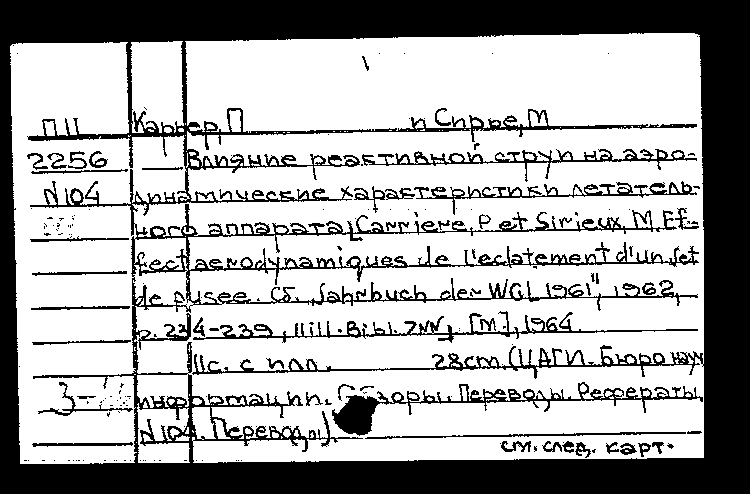 П11 Карьер, П и Сирье, М
2256 Влияние реактивной струи на аэро-
N104 динамические характеристики летатель-
ного аппарата [Carriere, P. et Sirieux, M. Ef-
fect aerodynamiques de l'eclatement d'un Jet
de fusee. Сб. "Jahrbuch der WGL 1961", 1962,
p. 234-239, 11ill. Bibl. 7NN], [М], 1964.
11с. с илл. 28см. (ЦАГИ. Бюро науч
информации. Обзоры. Переводы. Рефераты.
N104. Переводы).
см. след. карт.